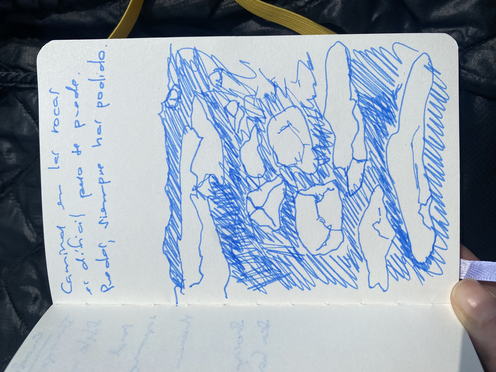 Caminar en las rocas
es dificil pero se puede.
Poder, siempre han podido.